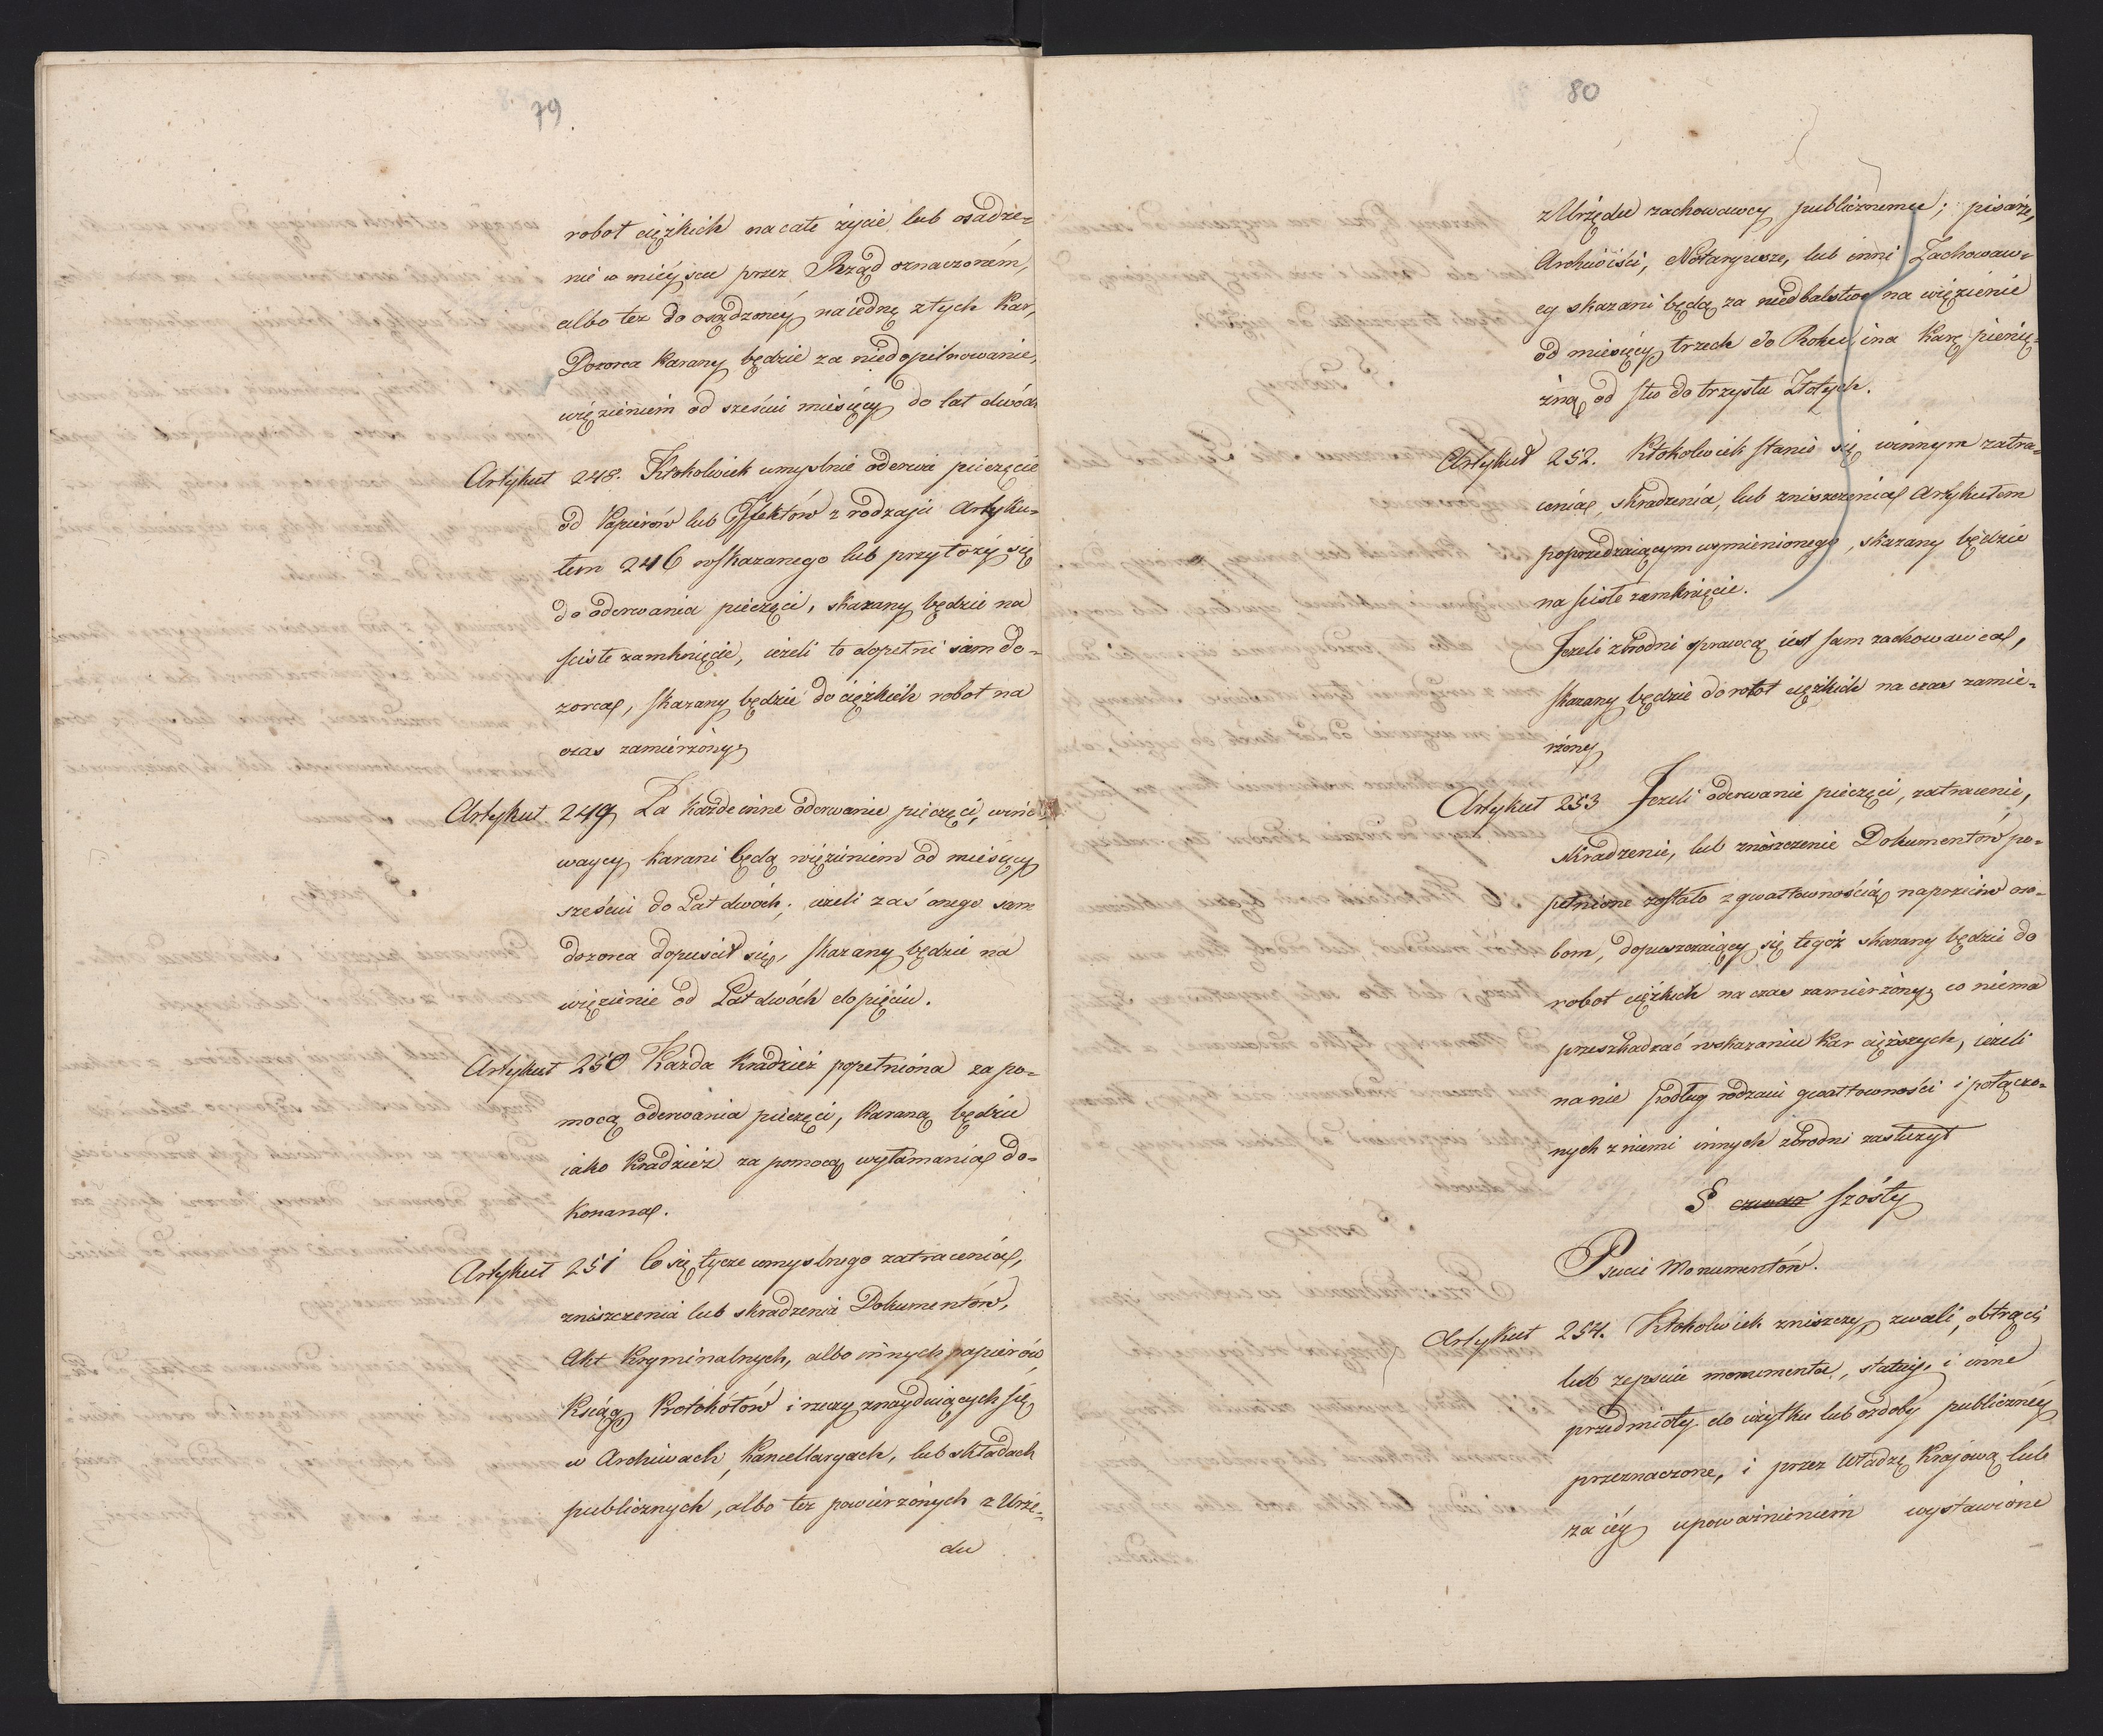 79
robot ciężkich na całe życie lub osadze=
nie w mieyscu przez Rząd oznaczoném,
albo też do osądzonéy na iednę z tych Kar,
Dozorca Karany będzie za niedopilnowanie,
więzieniem od sześciu miesięcy do lat dwóch
Artykuł 248. Ktokolwiek umyslnie oderwie pieczęcie
od Papierów lub Effektów z rodzaju Artyku=
łem 246 wskazanego lub przyłoży się
do oderwania pieczęci, skazany będzie na
sciste zamknięcie, ieżeli to dopełni sam do=
zorca, skazany będzie do ciężkich robot na
czas zamierzony
Artykuł 249 Za każde inne oderwanie pieczęci, wino
waycy karani będą więzieniem od miesięcy
sześciu do Lat dwóch; ieżeli zaś onego sam
dozorca dopuscił się, skazany będzie na
więzienie od Lat dwóch do pięciu.
Artykuł 250 Każda Kradzież popełniona za po=
mocą oderwania pieczęci, karaną będzie
iako Kradzież za pomocą wyłamania do=
konana.
Artykuł 251 Co się tycze umyslnego zatracenia,
zniszczenia lub skradzenia Dokumentów,
Akt Kryminalnych, albo innych papierów
Ksiąg, Protokółów i rzeczy znayduiących się
w Archiwach, Kancellaryach, lub składach
publicznych, albo też powierzonych z Urzę=
du
80
z Urzędu zachowawcy publicznemu; pisarze,
Archiwiści, Notaryusze, lub inni Zachowaw=
cy skazani będą za niedbalstwo na więzienie
od miesięcy trzech do Roku, i na Karę pienię=
żną od stu do trzystu Złotych.
Artykuł 252. Ktokolwiek stanie się winnym zatra=
cenia, skradzenia, lub zniszczenia Artykułem
poprzedzaiącym wymienionego, skazany będzie
na sciste zamknięcie.
Jeżeli zbrodni sprawcą iest sam zachowawca,
skazany będzie do robot ciężkich na czas zamie=
rzony
Artykuł 253 Jeżeli oderwanie pieczęci, zatracenie,
skradzenie, lub zniszczenie Dokumentów po=
pełnione zostało z gwałtownością naprzeciw oso=
bom, dopuszczaiący się tegoż skazany będzie do
robot ciężkich na czas zamierzony, co niema
przeszkadzać wskazaniu Kar cięższych, ieżeli
na nie podług rodzaiu gwałtowności i połączo=
nych z niemi innych zbrodni zasłużył
§ czwar szósty
Psucie Monumentów.
Artykuł 254. Ktokolwiek zniszczy, zwali, obtrąci,
lub zepsuie monumenta, statuy, i inne
przedmioty do użytku lub ozdoby publicznéy
przeznaczone, i przez Władzę Krajową lub
za iéy upoważnieniem wystawione